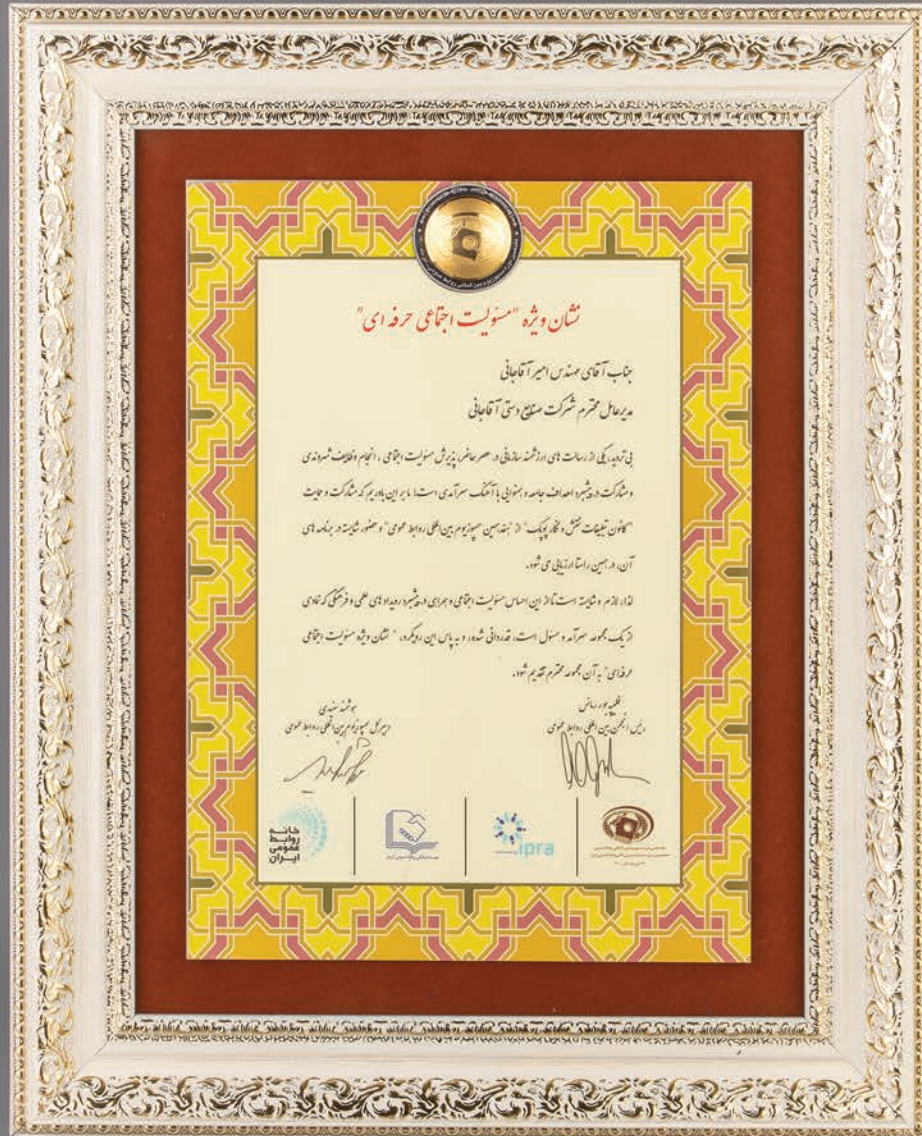 نشان ویژه "مسئولیت اجتماعی حرفه ای"
جناب آقای مهندس امیر آقاجانی
مدیرعامل محترم شرکت صنایع دستی آقاجانی
بی تردید، یکی از رسالت های ارزشمند سازمانی در عصر حاضر، پذیرش مسئولیت اجتماعی، انجام وظایف شهروندی
و مشارکت در پیشبرد اهداف جامعه و همنوایی با آهنگ سرآمدی است! ما بر این باوریم که مشارکت و حمایت
"کانون تبلیغات نقش و نگار پوپک" از "هفدهمین سمپوزیوم بین المللی روابط عمومی" و حضور شایسته در برنامه های
آن، در همین راستا ارزیابی می شود.
لذا، لازم و شایسته است تا از این احساس مسئولیت اجتماعی و همراهی در پیشبرد رویداد های علمی و فرهنگی که نمادی
از یک مجموعه سرآمد و مسئول است، قدردانی شده، و به پاس این رویکرد، "نشان ویژه مسئولیت اجتماعی
حرفه ای" به آن مجموعه محترم تقدیم شود.
رئیس انجمن بین المللی روابط عمومی
هوشمند سفیدی
دبیرکل سمپوزیوم بین المللی روابط عمومی
خانه
روابط
عمومی
ایران
ipra